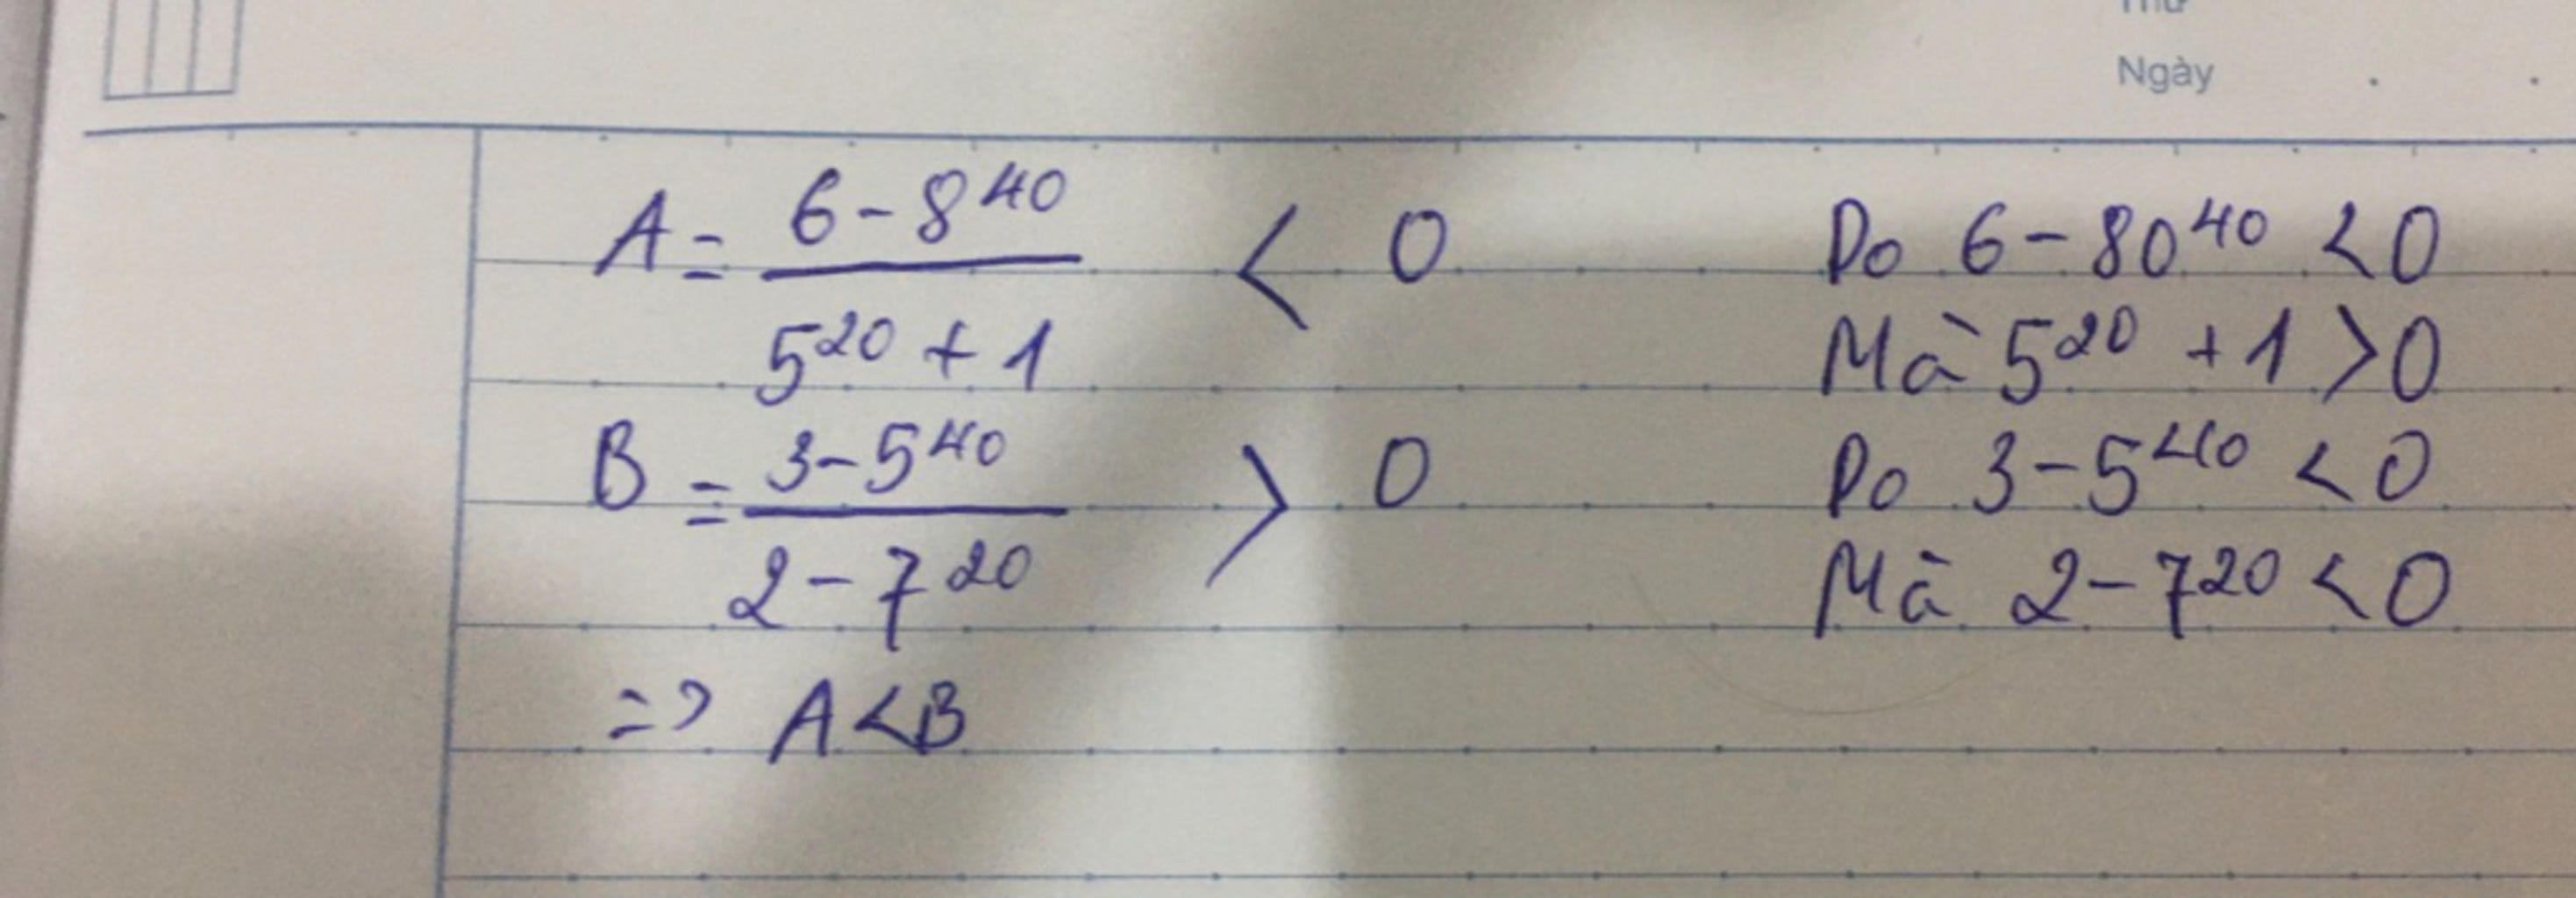 Thứ
Ngày
A = \frac{6 - 8^{40}}{5^{20} + 1} < 0
Do 6 - 80^{40} < 0
Mà 5^{20} + 1 > 0
B = \frac{3 - 5^{40}}{2 - 7^{20}} > 0
Do 3 - 5^{40} < 0
Mà 2 - 7^{20} < 0
=> A < B